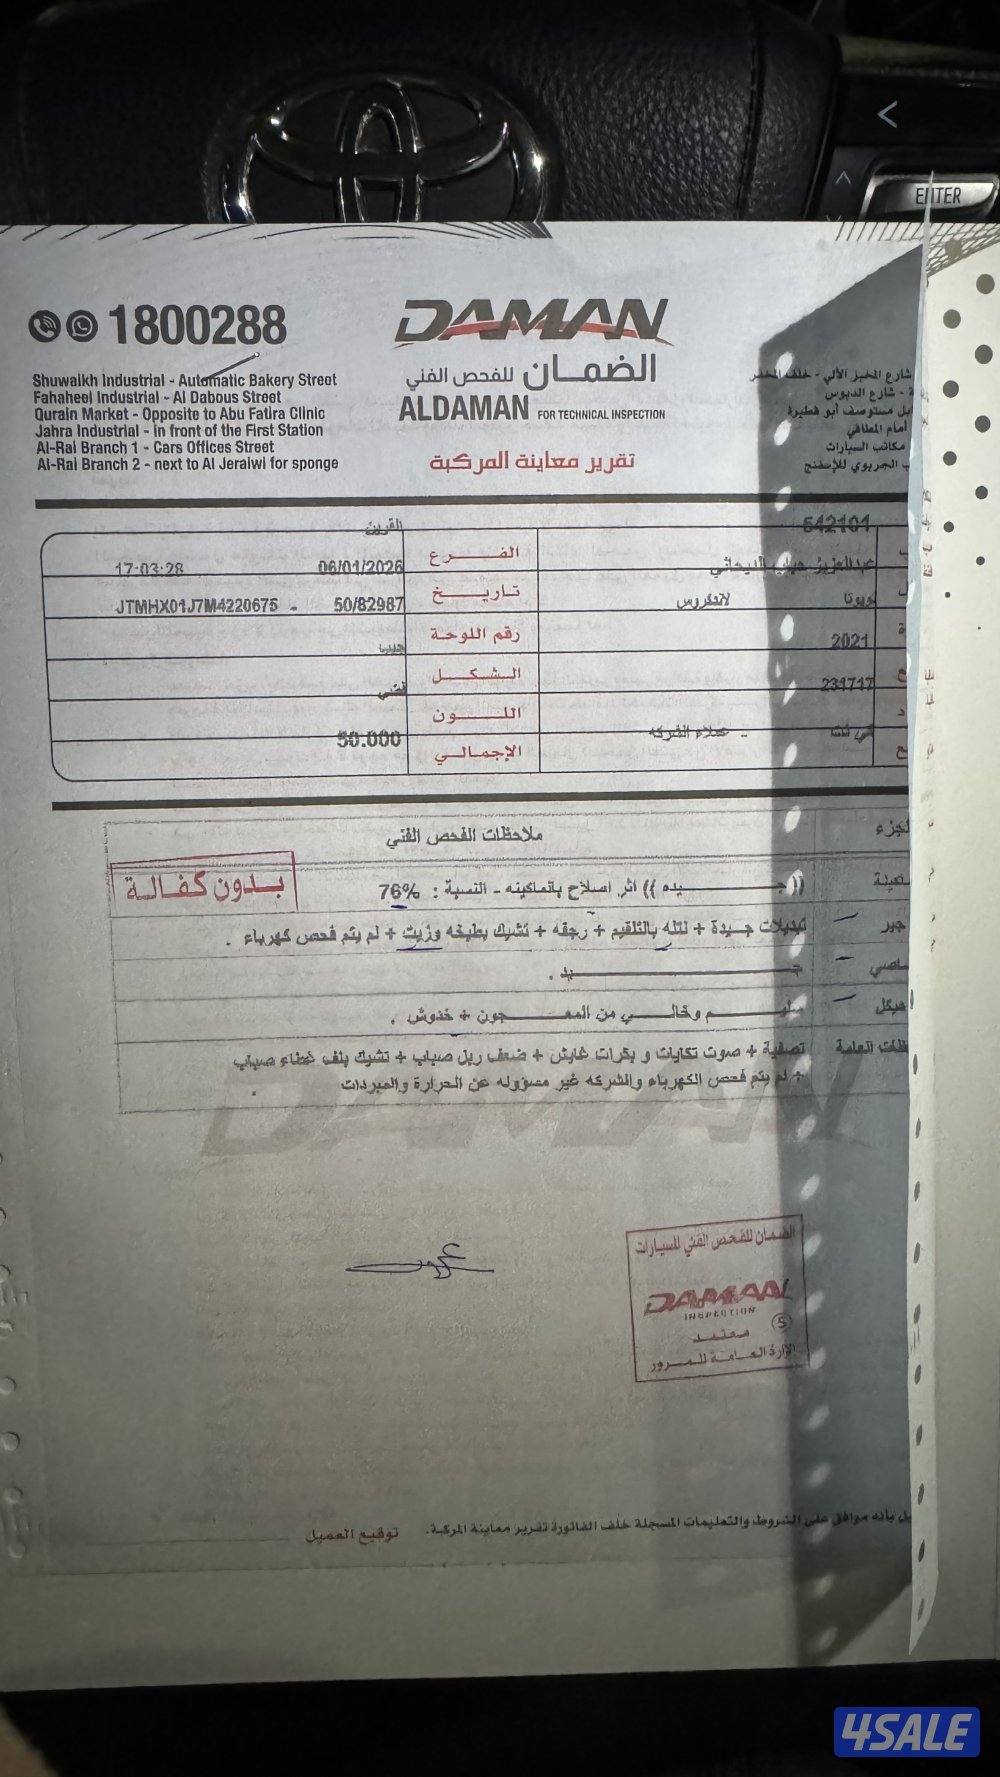 <
^
ENTER
1800288
DAMAN
الضمان للفحص الفني
ALDAMAN FOR TECHNICAL INSPECTION
تقرير معاينة المركبة
Shuwaikh Industrial - Automatic Bakery Street
Fahaheel Industrial - Al Dabous Street
Qurain Market - Opposite to Abu Fatira Clinic
Jahra Industrial - in front of the First Station
Al-Rai Branch 1 - Cars Offices Street
Al-Rai Branch 2 - next to Al Jeraiwi for sponge
شارع المخبز الآلي - خلف المخفر
- شارع الدبوس
بل مستوصف أبو فطيرة
أمام المطافي
مكاتب السيارات
ب الجريوي للإسفنج
542101
القرين
الفرع
06/01/2026 17:03:28
تاريخ
لاندكروس
50/82987 - JTMHX01J7M4220675
رقم اللوحة
2021
جيب
الشكل
231717
فضي
اللون
- عملاء الشركه
50.000
الإجمالي
لجزء
ملاحظات الفحص الفني
بدون كفالة
اكينة
(( جيده )) اثر اصلاح بالماكينه - النسبة : 76%
جير
تبديلات جيدة + نتله بالتلقيم + رجفه + تشيك بطيخه وزيت + لم يتم فحص كهرباء .
اصي
جيد .
هيكل
سليم وخالي من المعجون + خدوش .
ظات العامة
تصفية + صوت تكايات و بكرات قايش + ضعف ربل صباب + تشيك بلف غطاء صباب
+ لم يتم فحص الكهرباء والشركه غير مسؤوله عن الحرارة والمبردات .
الضمان للفحص الفني للسيارات
DAMAN
INSPECTION
5
معتمد
الإدارة العامة للمرور
يل بأنه موافق على الشروط والتعليمات المسجلة خلف الفاتورة تقرير معاينة المركبة. توقيع العميل
4SALE